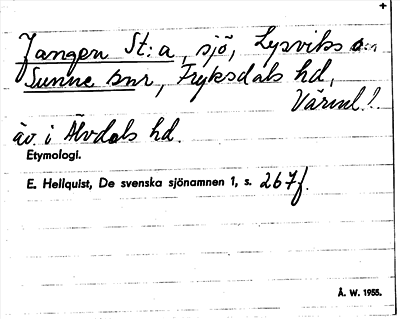 +
Jangen St:a, sjö, Lysviks o.
Sunne snr, Fryksdals hd,
Värml.
äv. i Älvdals hd.
Etymologi.
E. Hellquist, De svenska sjönamnen 1, s. 267f.
Å. W. 1955.